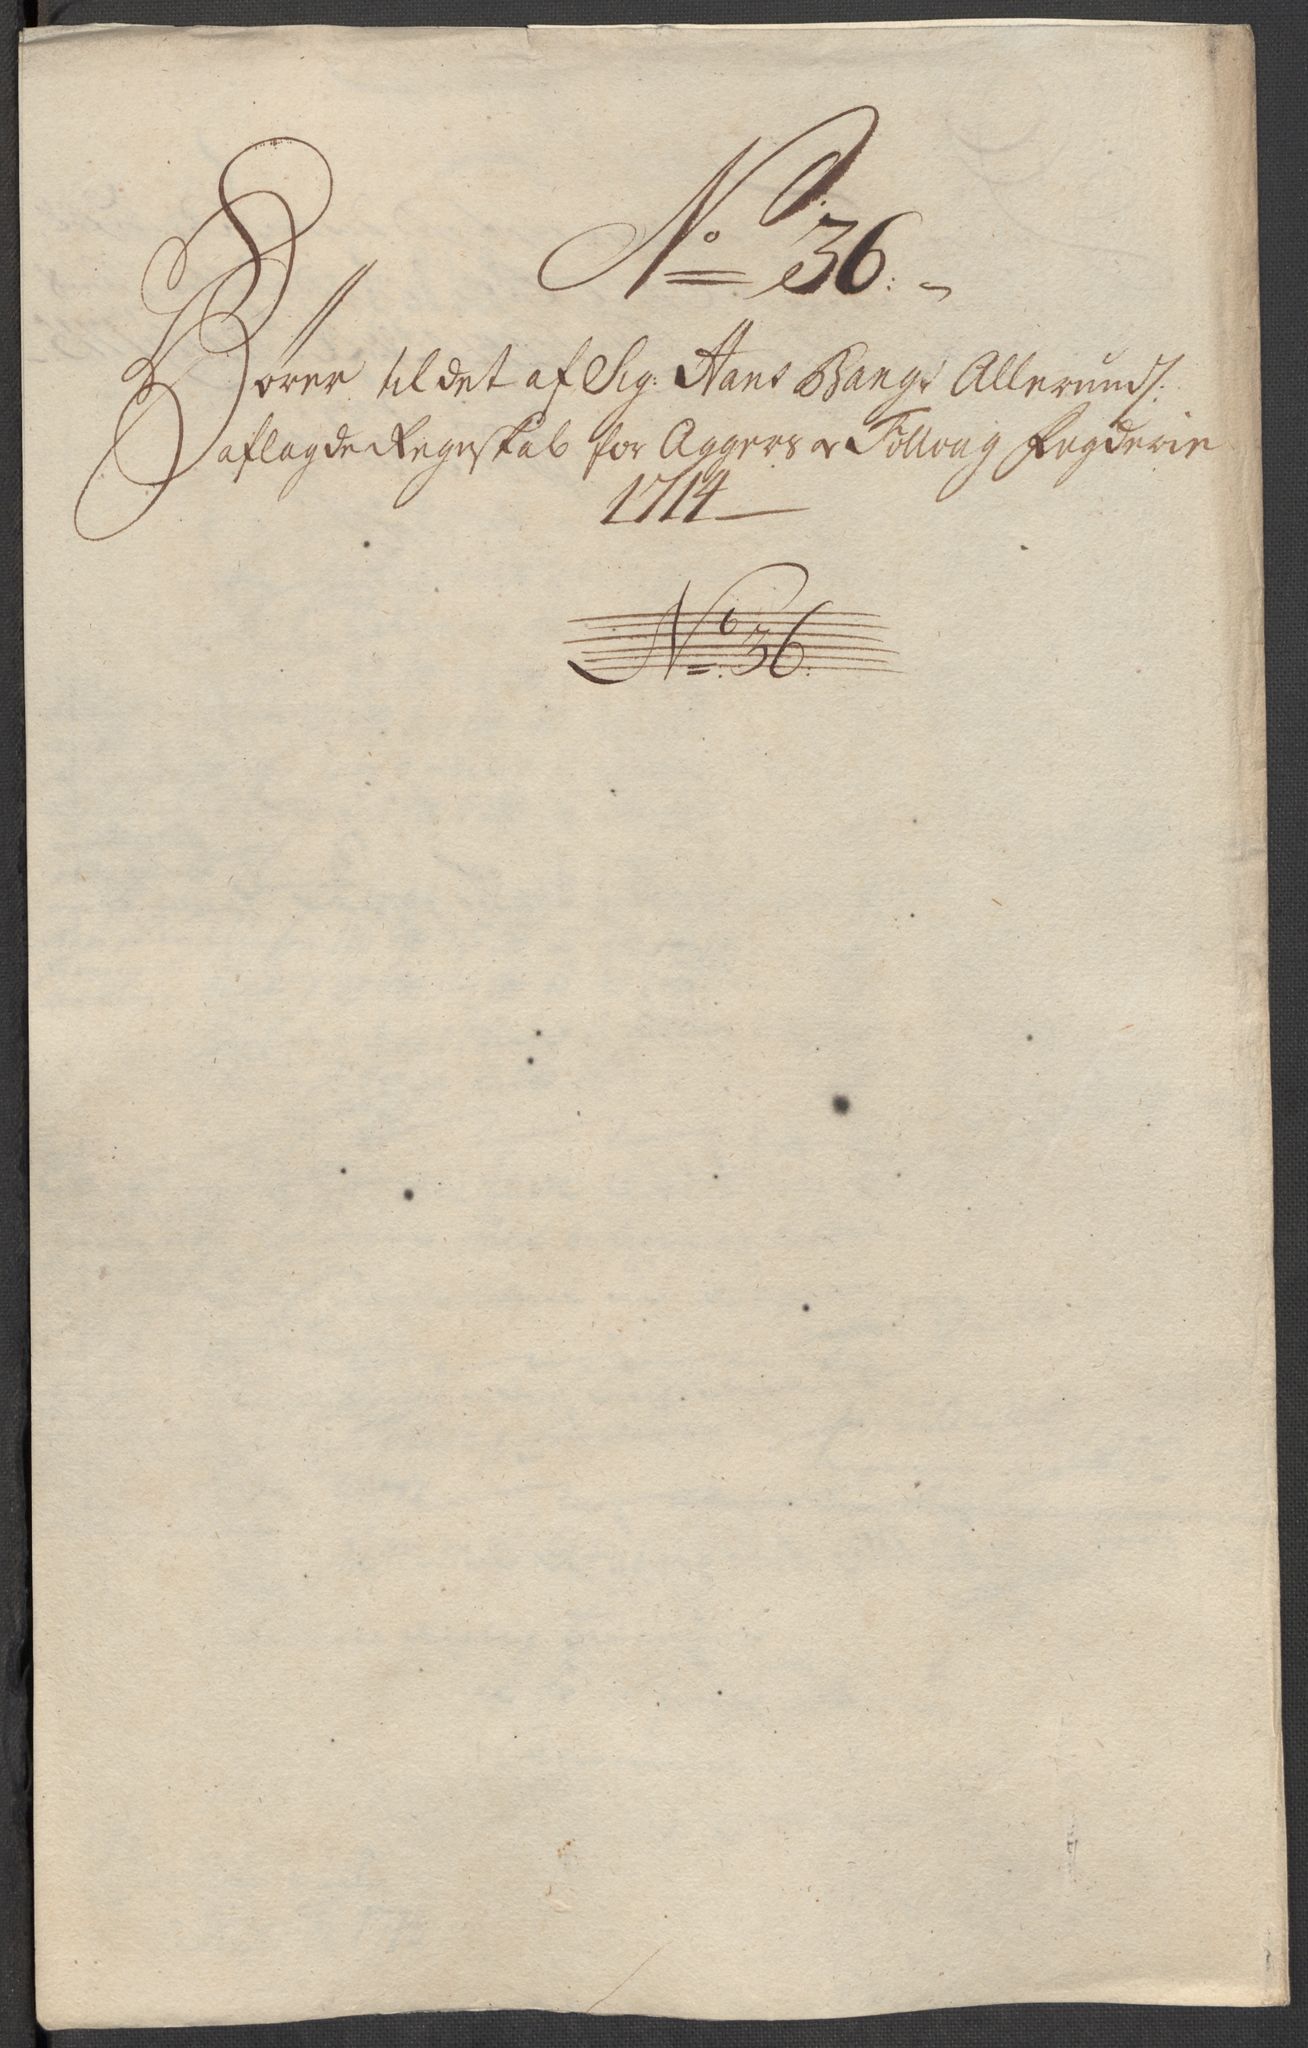 No 36.
Hører til det af Sig: Hans Bangs Allerunds:
aflagde Regnskab for Aggers o Folloug Fogderie
1714
No: 36.